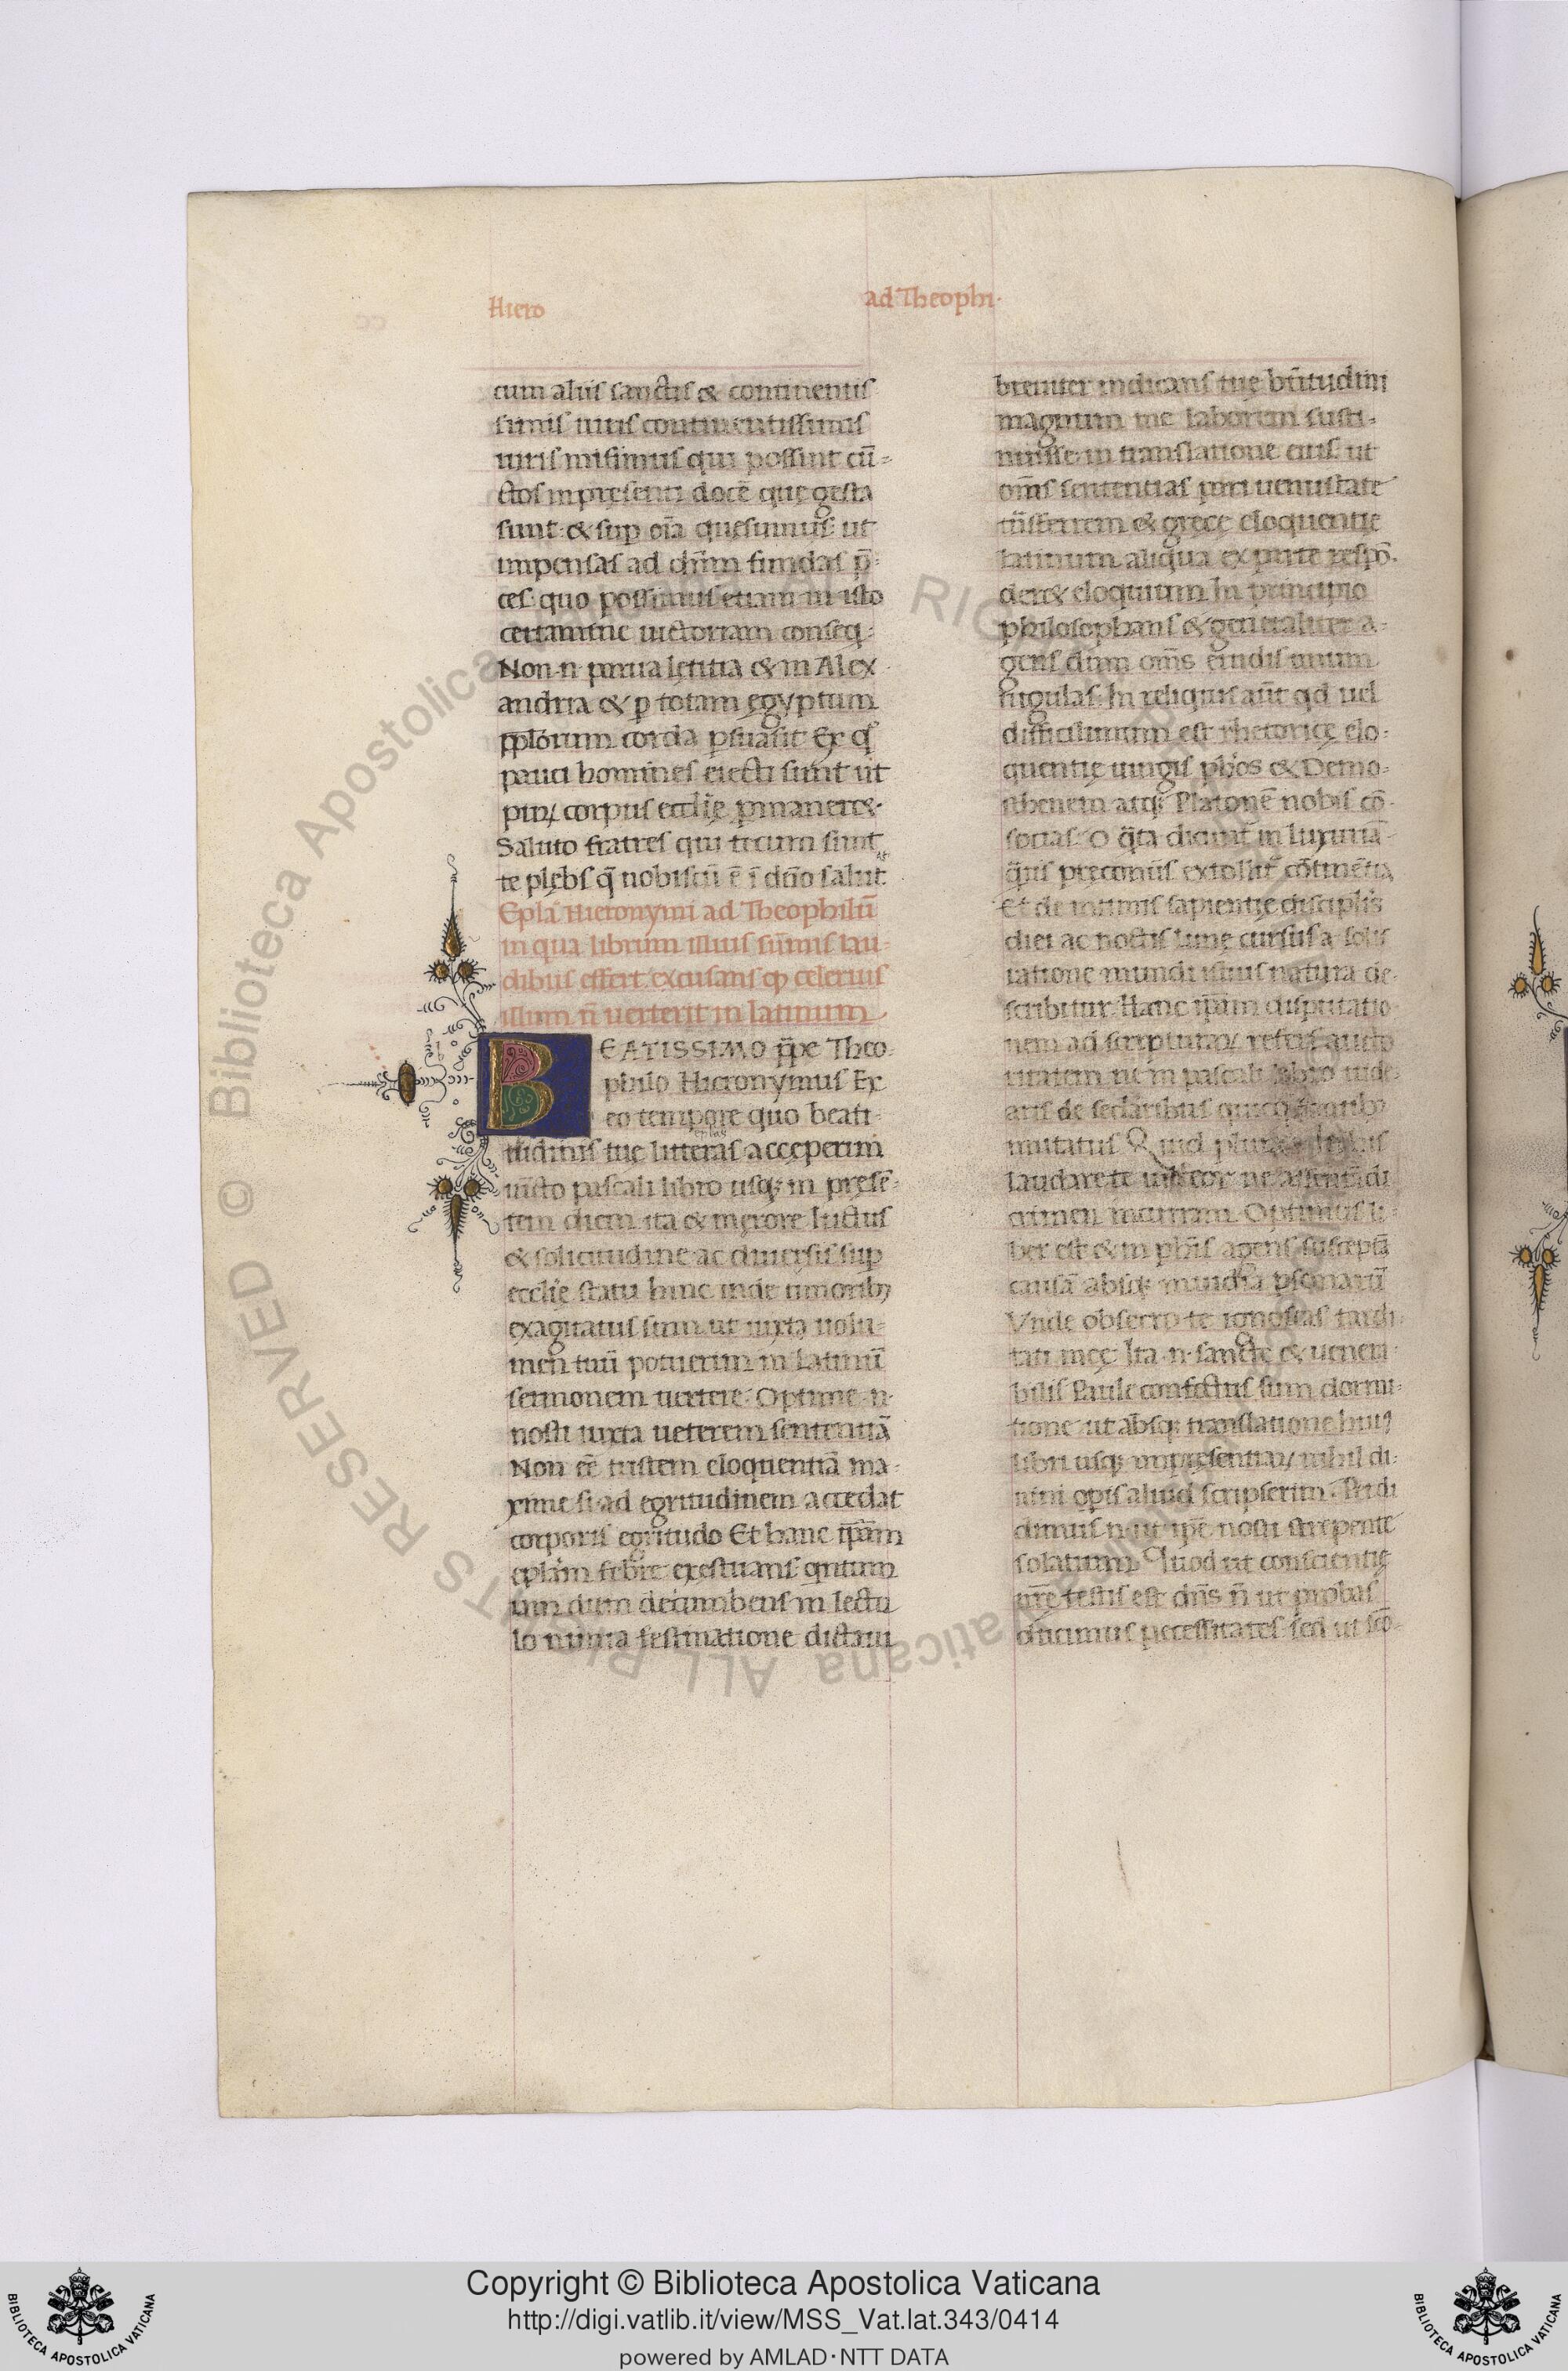 Hiero
ad Theophi·
cum aliis sanctis & continentis
simis uiris continentissimis
uiris misimus qui possint cū-
ctos in pręsenti docē quę gesta
sunt: & sup oīa quęsumus: ut
impensas ad dn̄m fundas p̄-
ces: quo possimus etiam in isto
certamine uictoriam conseq-
Non·n· parua lętitia & in Alex
andria & p totam ęgyptum
pplorum corda psuasit Ex qͥ
pauci homines eiecti sunt ut
puꝝ corpus ecclię pmaneret·
Saluto fratres qui tecum sunt
te plębs q̄ nobiscū ē ī dn̄o salut
Epła Hieronymi ad Theophilū
in qua librum illius sūmis lau-
dibus effert excusans ꝙ celerius
illum n̄ uerterit in latinum
BEATISSIMO p̄pe Theo-
philo Hieronymus Ex
eo tempore quo beati-
tudinis tuę litteras accęperim
iūcto pascali libro usq; in pręsē-
tem diem ita & męrore luctus
& solicitudine ac diuersis sup
ecclię statu hinc inde timorib;
exagitatus sum ut iuxta uolu-
men tuū potuerim in latinū
sermonem uertere· Optime·n·
nosti iuxta ueterem sententiā
Non eē tristem eloquentiā ma-
xime si ad ęgritudinem accedat
corporis ęgritudo Et hanc ip̄am
epłam febre exęstuans: qntum
iam dum decumbens in lectu
lo nimia festinatione dictaui
breuiter indicans tuę bt̄itudini
magnum me laborem susti-
nuisse in translatione eius: ut
om̄s sententias pari uenustate
tn̄sferrem & gręcę eloquentię
latinum aliqua ex parte respō-
deret eloquium In principio
philosophans & generaliter a-
gens dum om̄s erudis unum
iugulas: In reliquis aūt qd uel
difficilimum est rhetoricę elo-
quentię iungis phōs & Demo-
sthenem atq; Platonē nobis cō-
socias: O q̄ta dicunt̄ in luxuriā-
q̄is pręconiis extollit̄ cōtinētia
Et de intimis sapientię disciplis
diei ac noctis lunę cursus a solis
ratione mundi istius natura de-
scribitur Hanc ip̄am disputatio-
nem ad scripturaꝝ refers aucto
ritatem ne in pascali libro uide-
aris de sęclaribus
mutatus Quid
laudare te uideor ne assentādi
crimen incurram Optimus li-
ber est & in phīs agens susceptā
causā absq; inuidia psonarū
Vnde obsecro te ignoscas tardi-
tati meę· Ita·n·sanctę & uenera-
bilis Paulę confectus sum dormi-
tione ut absq; translatione huiꝰ
libri usq; inpręsentiaꝝ nihil di-
uini opis aliud scripserim· Perdi
dimus·n·ut ip̄e nosti
solatium Quod ut conscientię
nr̄ę testis est dn̄s n̄ ut probas
ducimus necessitates sed ut scō-
Copyright © Biblioteca Apostolica Vaticana
http://digi.vatlib.it/view/MSS_Vat.lat.343/0414
powered by AMLAD·NTT DATA
BIBLIOTECA APOSTOLICA VATICANA
BIBLIOTECA APOSTOLICA VATICANA
© Biblioteca Apostolica Vaticana ALL RIGHTS RESERVED